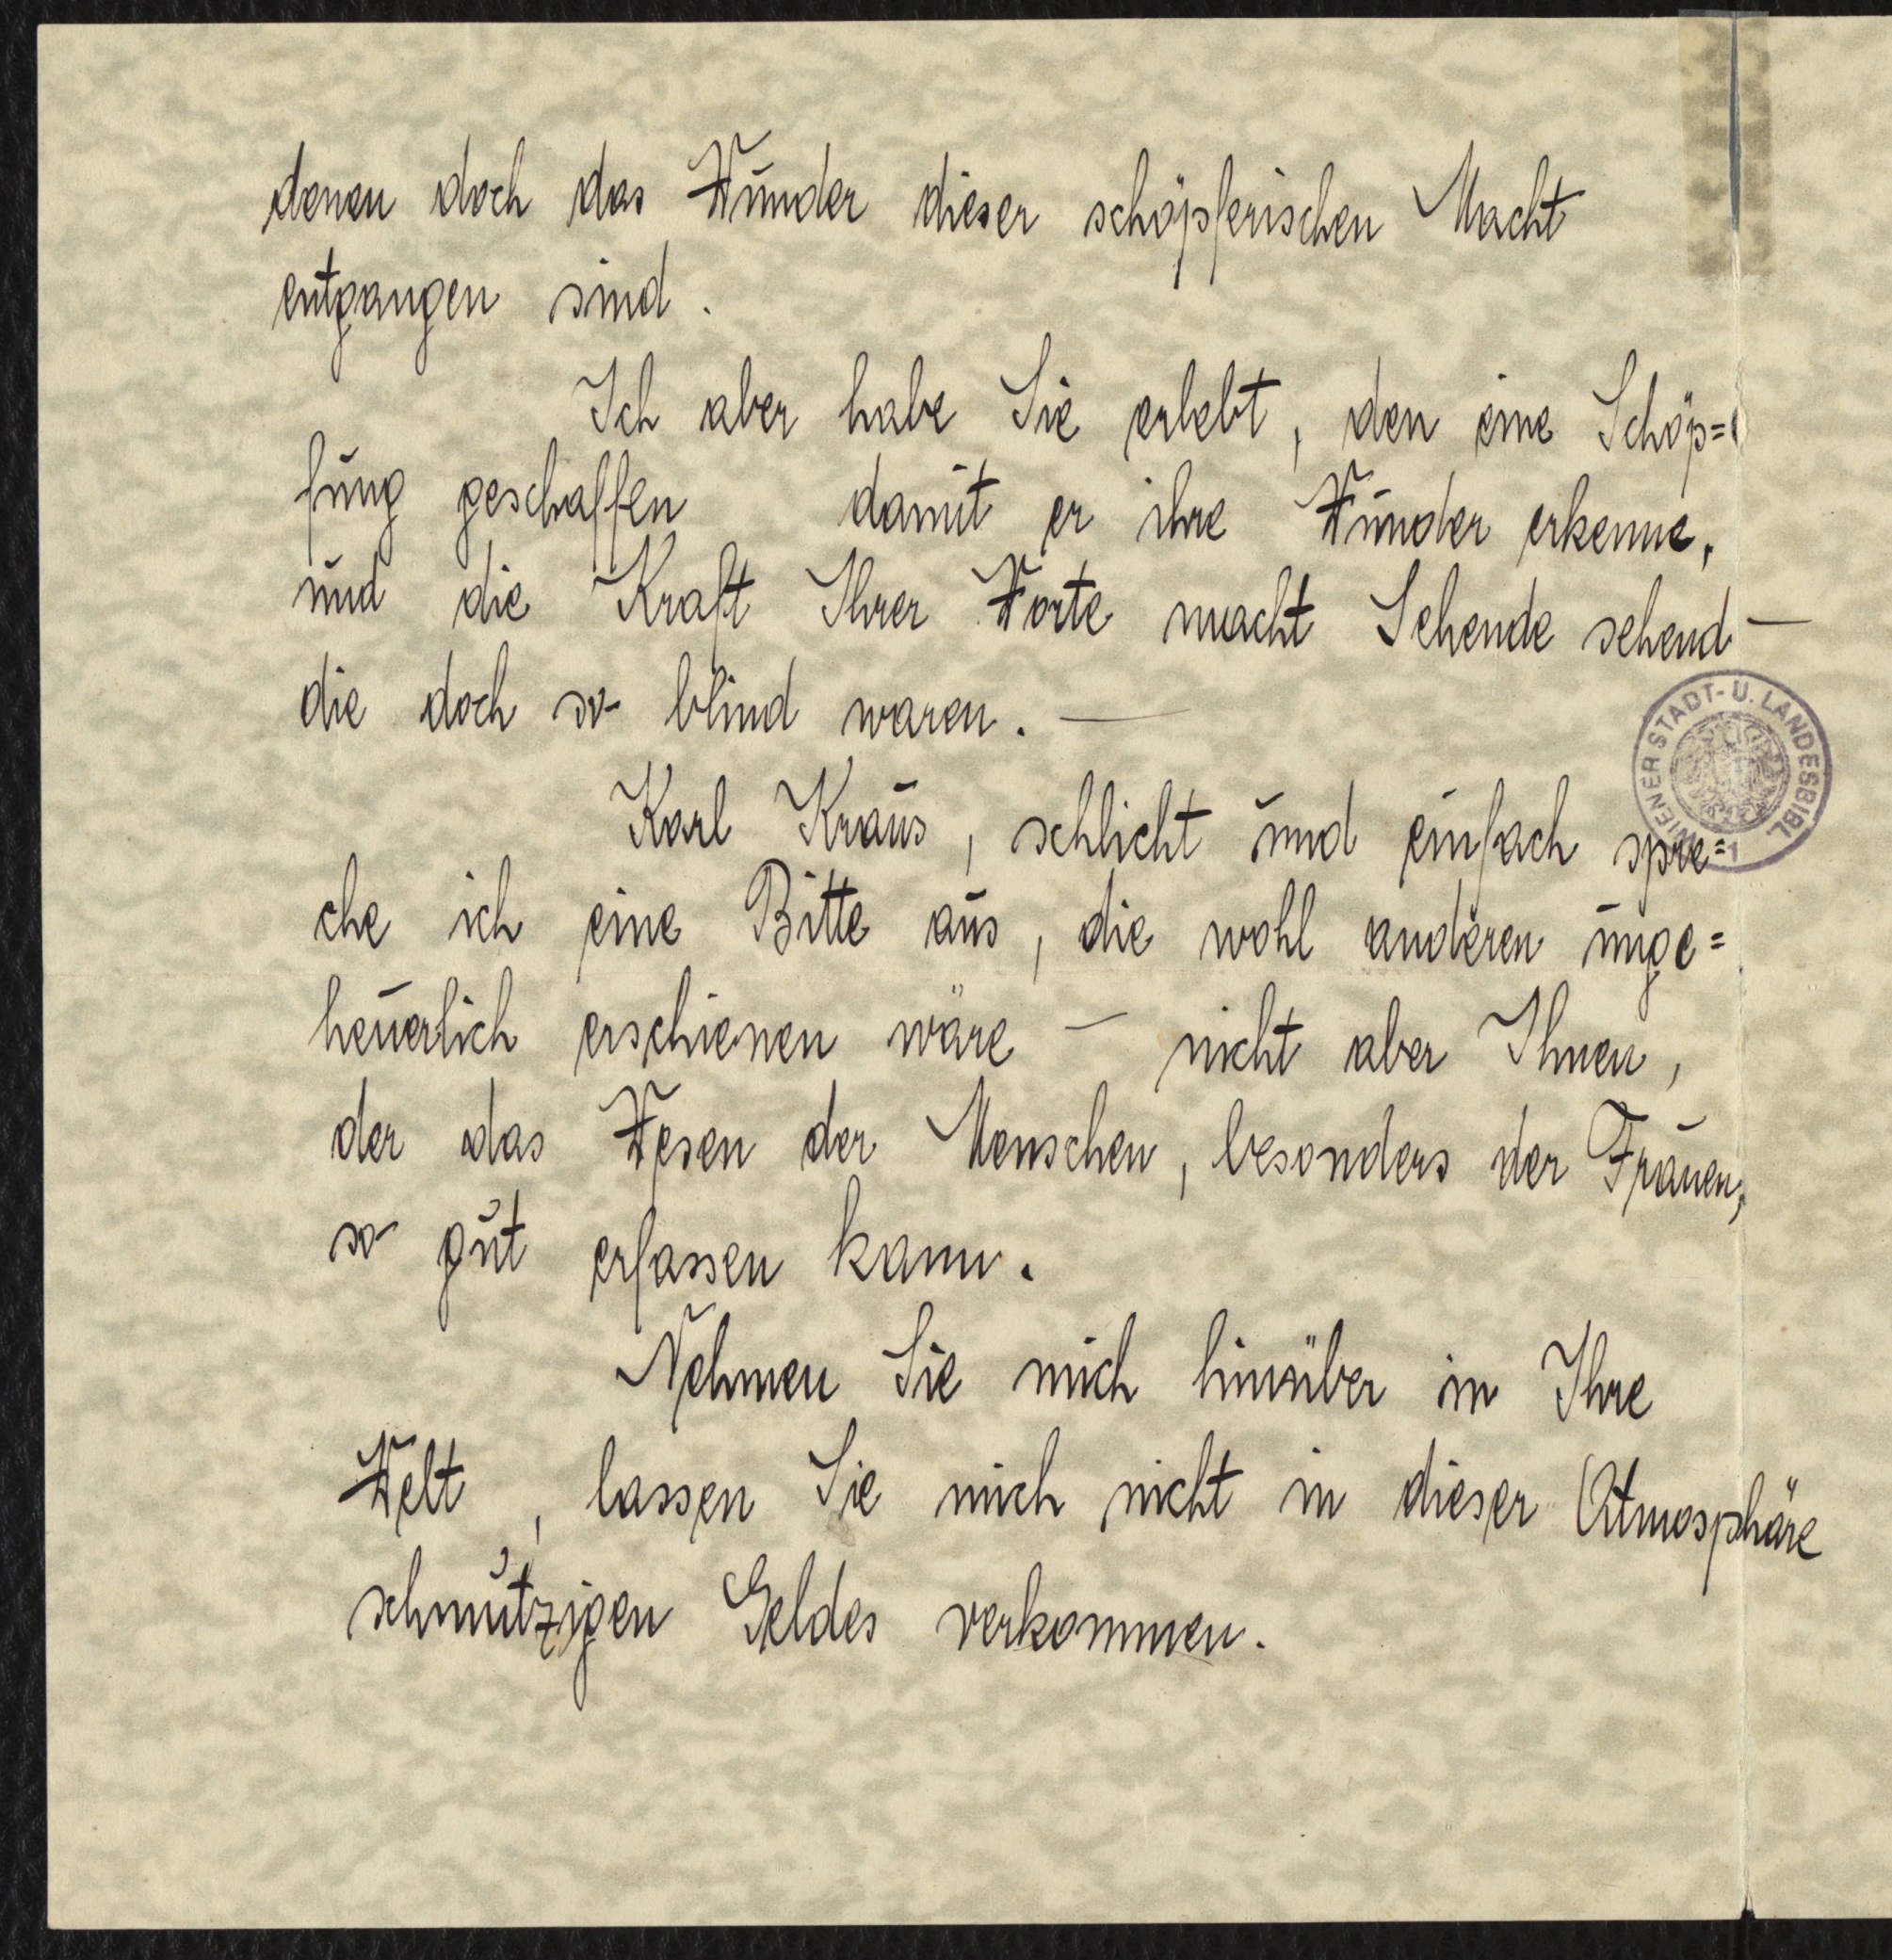 denen doch das Wunder dieser schöpferischen Macht
entgangen sind.
Ich aber habe Sie erlebt, den eine Schöp=
fung geschaffen damit er ihre Wunder erkenne,
und die Kraft Ihrer Worte macht Sehende sehend —
die doch so blind waren. —
Karl Kraus, schlicht und einfach spre=
che ich eine Bitte aus, die wohl anderen unge=
heuerlich erschienen wäre — nicht aber Ihnen,
der das Wesen der Menschen, besonders der Frauen,
so gut erfassen kann.
Nehmen Sie mich hinüber in Ihre
Welt, lassen Sie mich nicht in dieser Atmosphäre
schmutzigen Geldes verkommen.
WIENER STADT- U. LANDESBIBL